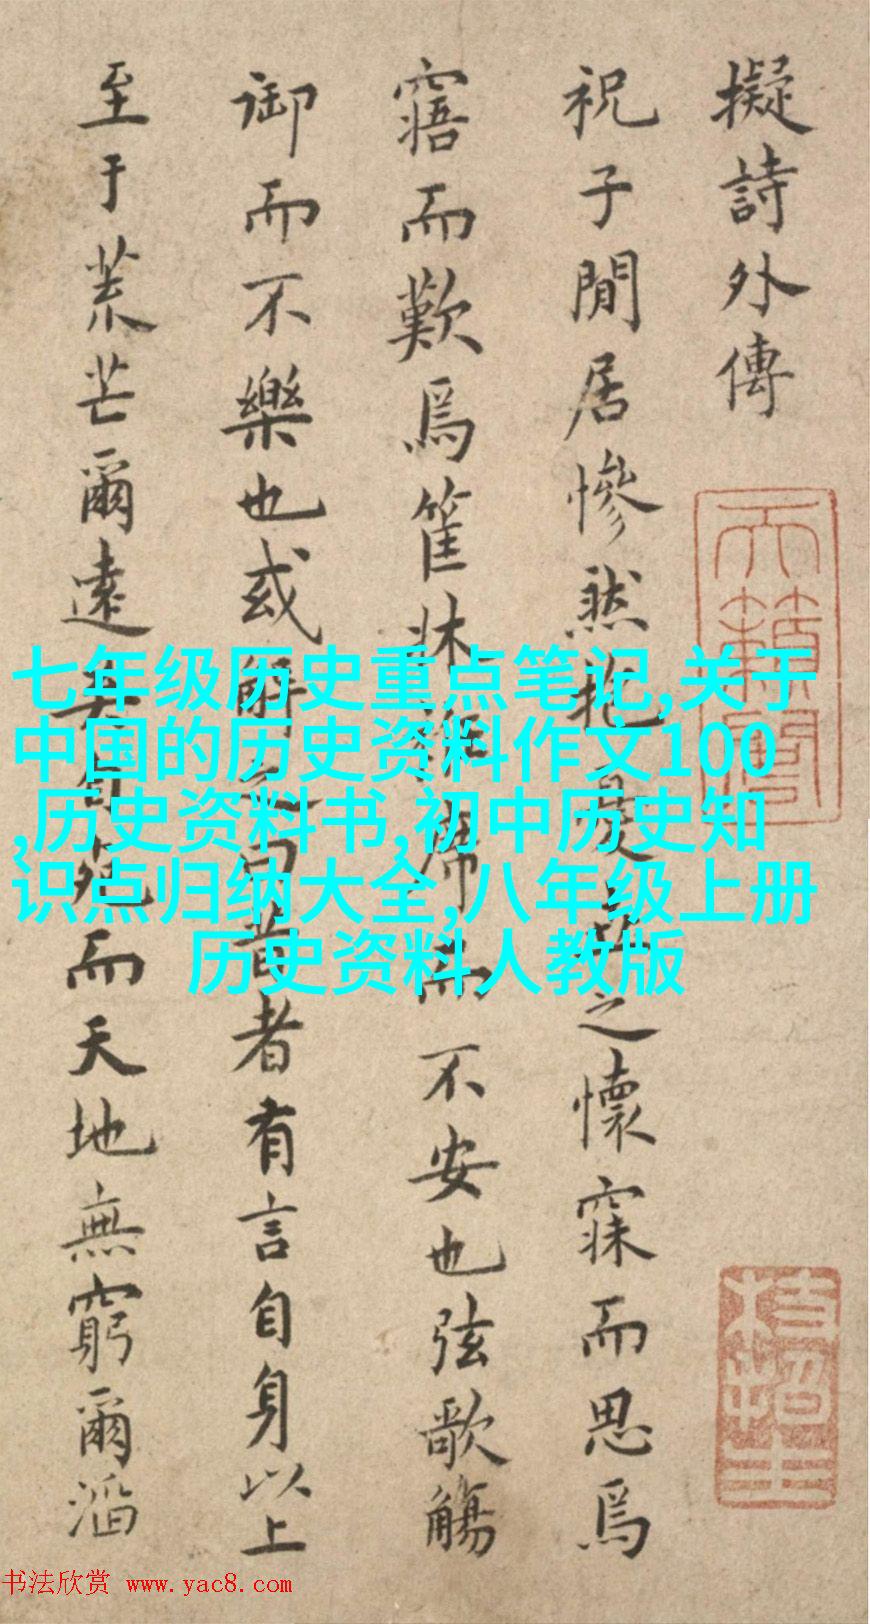 擬詩外傳
祝子閒居慘然抱憂 之懷寐而思焉
寤而歎焉筐牀 席而不安也弦歌觴
御而不樂也或解之曰昔者有言自身以上
至于荒芒爾遠矣自 而天地無窮爾滔
七年级历史重点笔记,关于
中国的历史资料作文100
,历史资料书,初中历史知
识点归纳大全,八年级上册
历史资料人教版
天籟閣
枝指生
书法欣赏 www.yac8.com